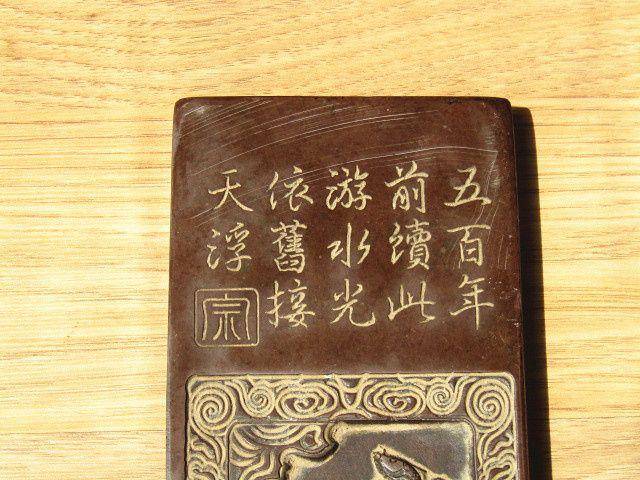 五百年
前續此
游水光
依舊接
天浮
宗